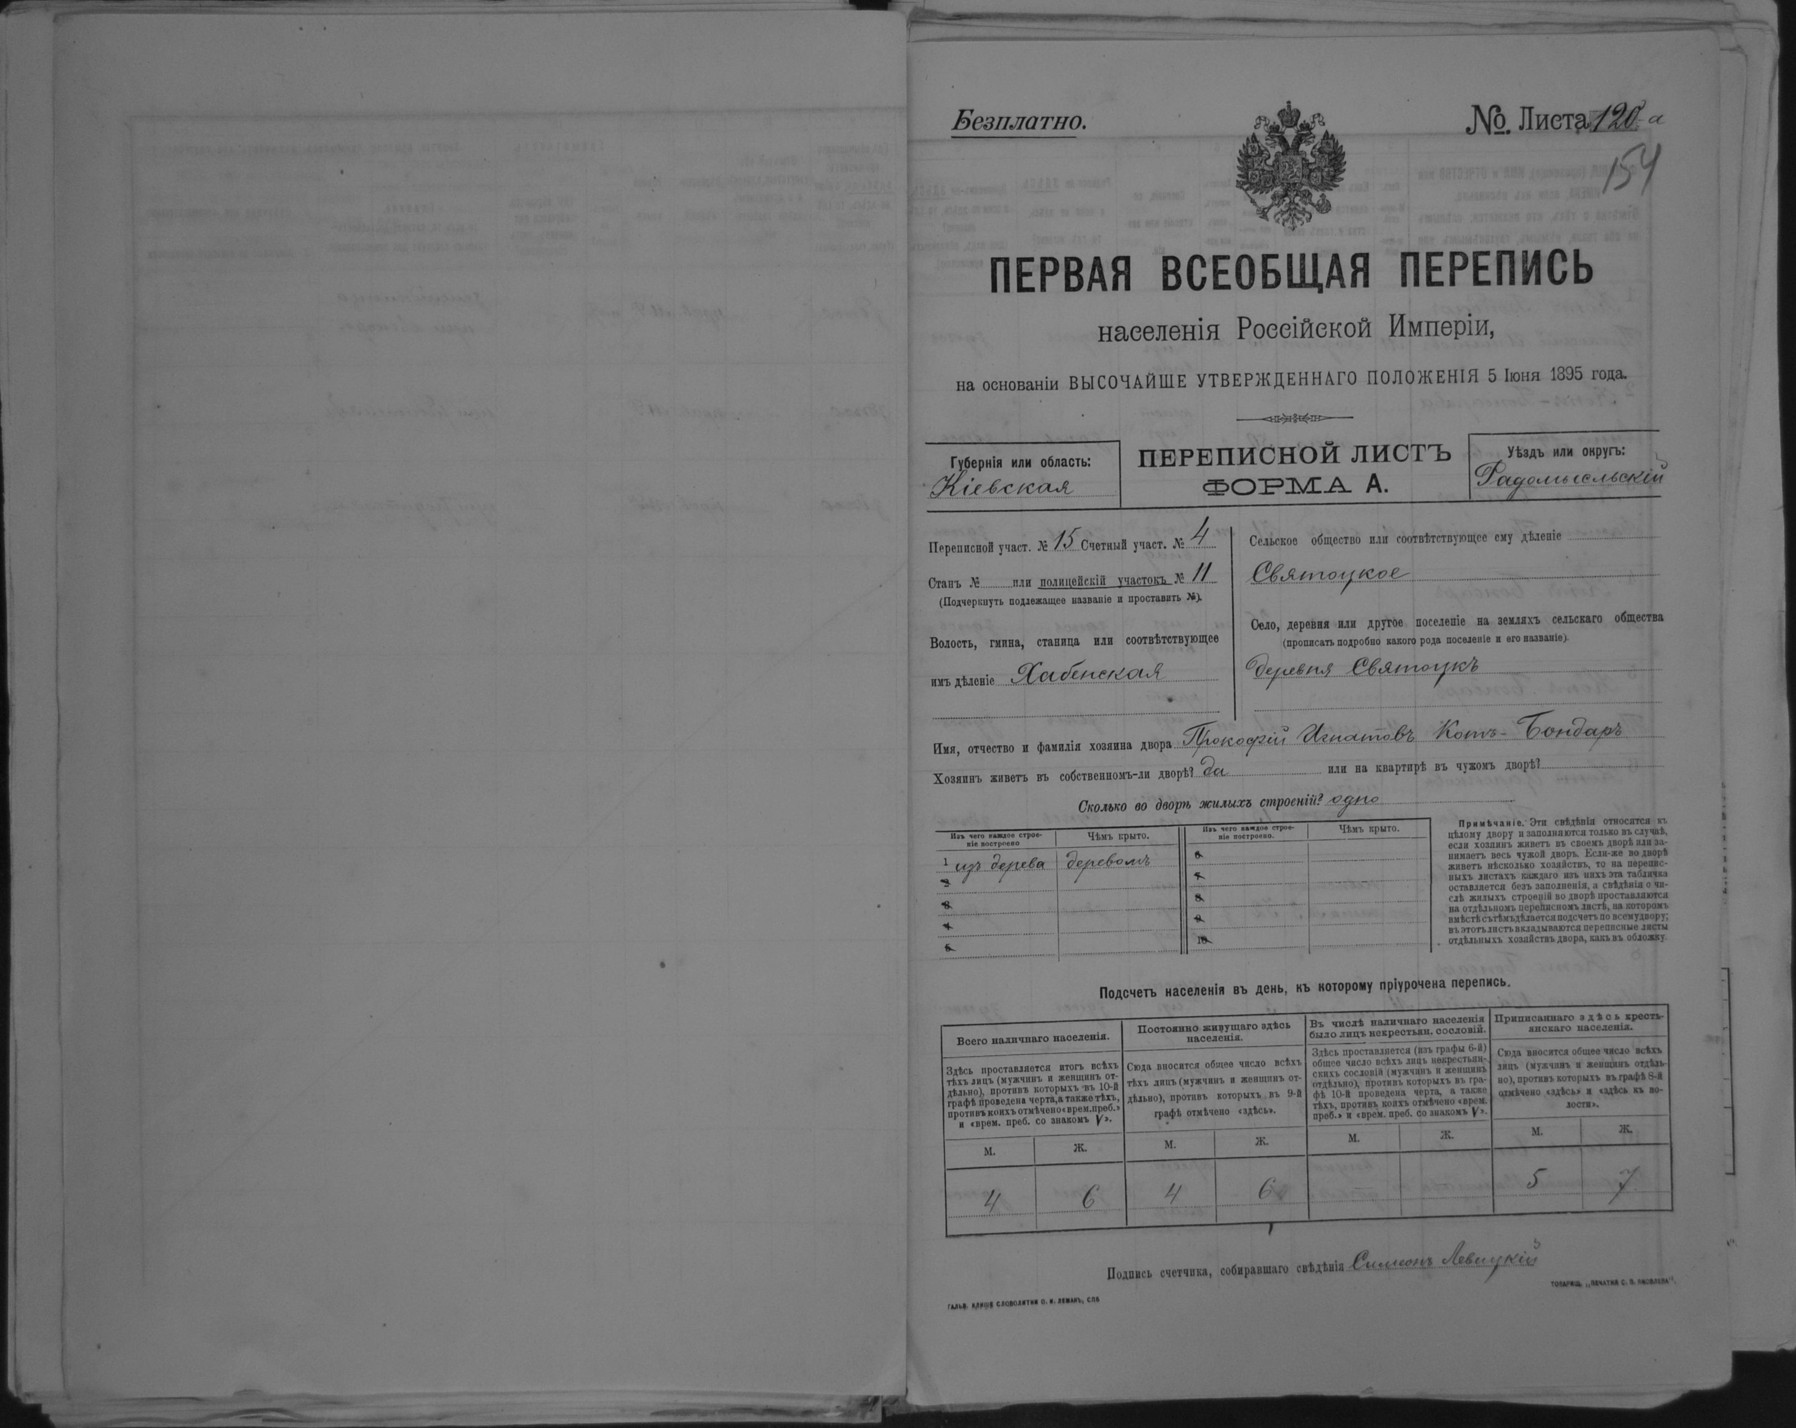 Безплатно.
№. Листа 120-а
154
ПЕРВАЯ ВСЕОБЩАЯ ПЕРЕПИСЬ
населенія Россійской Имперіи,
на основаніи ВЫСОЧАЙШЕ УТВЕРЖДЕННАГО ПОЛОЖЕНІЯ 5 Іюня 1895 года.
Губернія или область:
Кіевская
ПЕРЕПИСНОЙ ЛИСТЪ
ФОРМА А.
Уѣздъ или округъ:
Радомысльскій
Переписной участ. № 15 Счетный участ. № 4
Станъ № или полицейскій участокъ № 11
(Подчеркнуть подлежащее названіе и проставить №).
Волость, гмина, станица или соотвѣтствующее
имъ дѣленіе Хабенская
Сельское общество или соотвѣтствующее ему дѣленіе
Святоцкое
Село, деревня или другое поселеніе на земляхъ сельскаго общества
(прописать подробно какого рода поселеніе и его названіе)
деревня Святоцкъ
Имя, отчество и фамилія хозяина двора Прокофій Игнатовъ Котъ-Бондаръ
Хозяинъ живетъ въ собственномъ-ли дворѣ? да или на квартирѣ въ чужомъ дворѣ?
Сколько во дворѣ жилыхъ строеній? одно
Изъ чего каждое строе-
ніе построено
Чѣмъ крыто.
Изъ чего каждое строе-
ніе построено.
Чѣмъ крыто.
1 изъ дерева деревомъ
2
3
4
5
6
7
8
9
10
Примѣчаніе. Эти свѣдѣнія относятся къ
цѣлому двору и заполняются только въ случаѣ,
если хозяинъ живетъ въ своемъ дворѣ или за-
нимаетъ весь чужой дворъ. Если-же во дворѣ
живетъ нѣсколько хозяйствъ, то на перепис-
ныхъ листахъ каждаго изъ нихъ эта табличка
оставляется безъ заполненія, а свѣдѣнія о чи-
слѣ жилыхъ строеній во дворѣ проставляются
на отдѣльномъ переписномъ листѣ, на которомъ
вмѣстѣ съ тѣмъ дѣлается подсчетъ по всему двору;
въ этотъ листъ вкладываются переписные листы
отдѣльныхъ хозяйствъ двора, какъ въ обложку
Подсчетъ населенія въ день, къ которому пріурочена перепись.
Всего наличнаго населенія.
Здѣсь проставляется итогъ всѣхъ
тѣхъ лицъ (мужчинъ и женщинъ от-
дѣльно), противъ которыхъ въ 10-й
графѣ проведена черта, а также тѣхъ,
противъ коихъ отмѣчено «врем. преб.»
и «врем. преб. со знакомъ V».
М. Ж.
4 6
Постоянно живущаго здѣсь
населенія.
Сюда вносится общее число всѣхъ
тѣхъ лицъ (мужчинъ и женщинъ от-
дѣльно), противъ которыхъ въ 9-й
графѣ отмѣчено «здѣсь».
М. Ж.
4 6
Въ числѣ наличнаго населенія
было лицъ некрестьян. сословій.
Здѣсь проставляется (изъ графы 6-й)
общее число всѣхъ лицъ некрестьян-
скихъ сословій (мужчинъ и женщинъ
отдѣльно), противъ которыхъ въ гра-
фѣ 10-й проведена черта, а также
тѣхъ, противъ коихъ отмѣчено «врем.
преб.» и «врем. преб. со знакомъ V».
М. Ж.
Приписаннаго здѣсь кресть-
янскаго населенія.
Сюда вносится общее число всѣхъ
лицъ (мужчинъ и женщинъ отдѣль-
но), противъ которыхъ въ графѣ 8-й
отмѣчено «здѣсь» и «здѣсь къ во-
лости».
М. Ж.
5 7
Подпись счетчика, собиравшаго свѣдѣнія Симионъ Левицкій
ГАЛЬВ. КЛИШЕ СЛОВОЛИТНИ О. И. ЛЕМАНЪ, СПБ
ТОВАРИЩ. „ПЕЧАТНЯ С. П. ЯКОВЛЕВА".